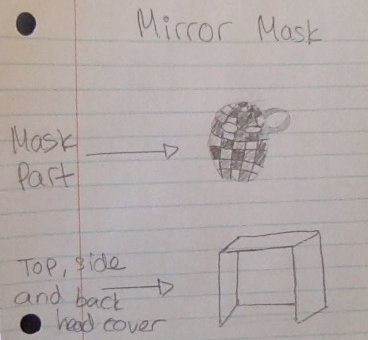 Mirror Mask
Mask
Part
Top, side
and back
head cover